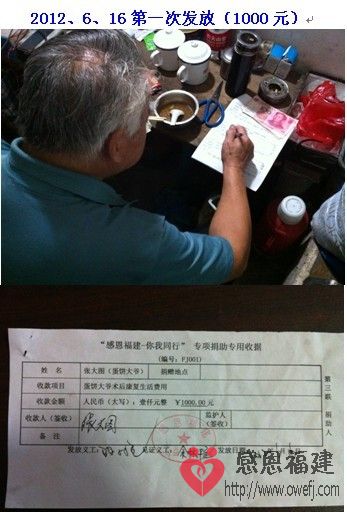 2012、6、16第一次发放（1000元）
感恩福建
www.owefj.com
“感恩福建-你我同行” 专项捐助专用收据
（编号：FJ001）
姓 名 张大图（蛋饼大爷） 捐赠地点
收款项目 蛋饼大爷术后康复生活费用
收款金额 人民币（大写）：壹仟元整 ￥1000.00元
收款人（签收） 监护人（签收）
备 注
第三联 捐助人
发放义工： 见证义工： 发放日期
感恩福建
http://www.owefj.com